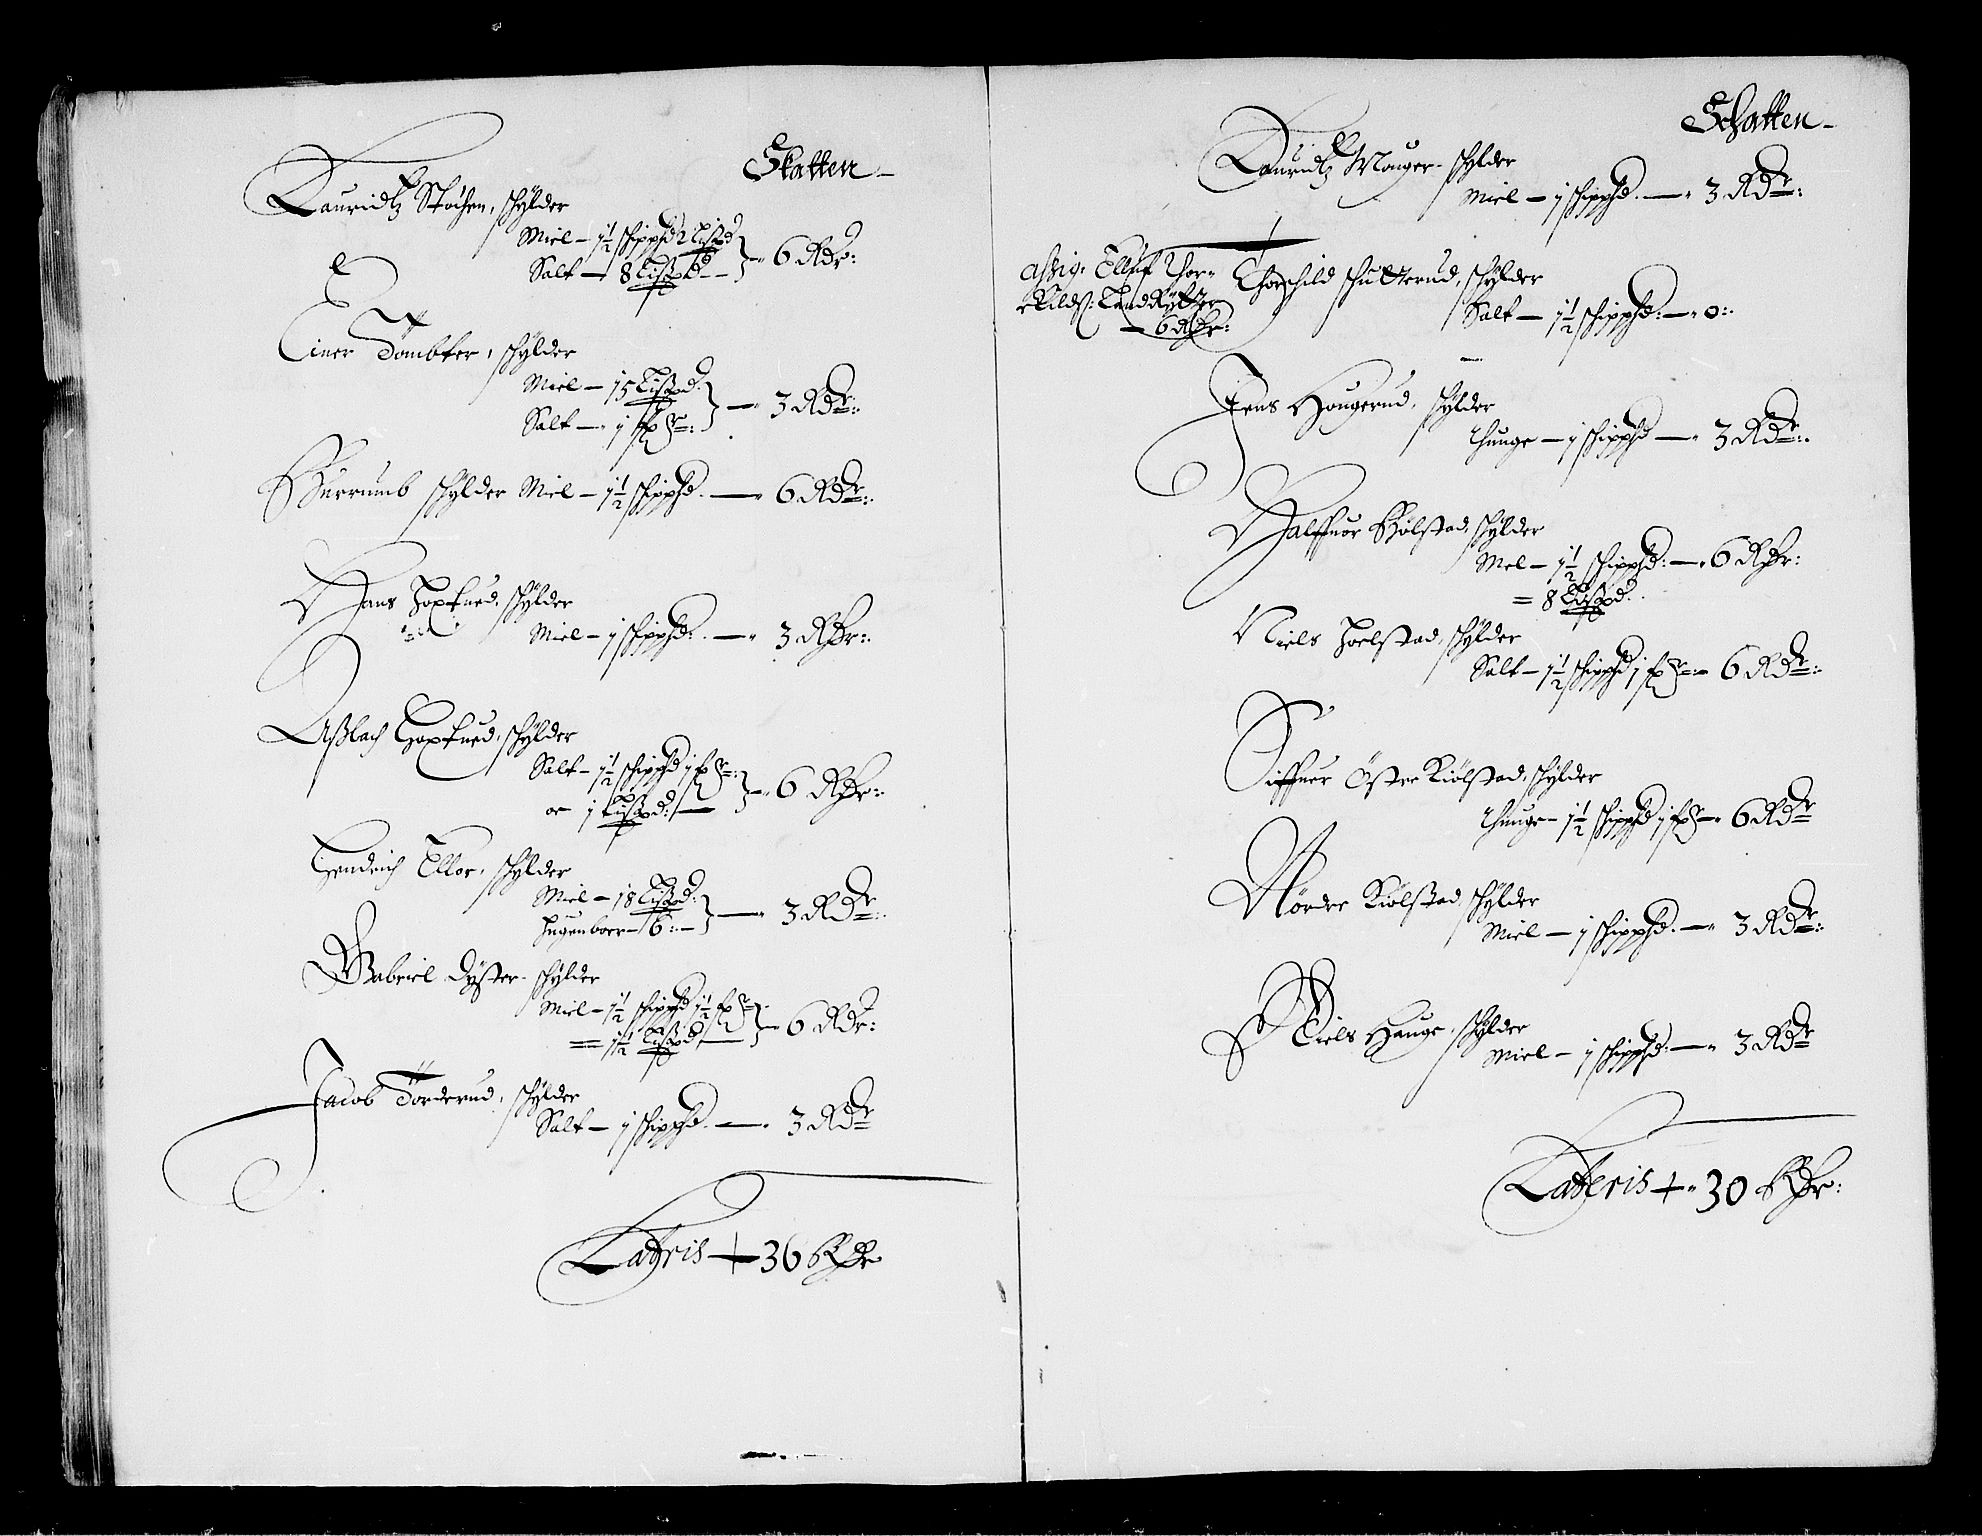 Skatten
Lauridtz Stochen, schylder
Miel - 1½ schippd 2 Lispd
Salt - 8 Lispd - 6 Rdr:
Einer Tombter, schylder
Miel - 15 Lispd.
Salt - 1 fr: - 3 Rdr:
Burrumb schylder Miel - 1½ schippd. - 6 Rdr:
Hans Hoxsrud, schylder
Miel - 1 schippd: - 3 Rdr:
Aslach Hoxsrud, schylder
Salt - 1½ schippd 1 fr:
oc 1 Lispd: - 6 Rdr:
Hendrich Ellor, schylder
Miel - 18 Lispd:
Hugenboer - 6: - 3 Rdr:
Gabriel Dyster - schylder
Miel - 1½ schippd 1½ fr
= 1½ Lispd - 6 Rdr:
Jacob Torderud, schylder
Salt - 1 schippd. - 3 Rdr
Lateris - 36 Rdr
Schatten
Lauridtz Mouger - schylder
Miel - 1 schippd. - 3 Rdr:
Afsig. Elluf Thor=
kilds: LandRytter
- 6 Rdr:
Thorchild schutterud, schylder
Salt - 1½ schippd: - 0:
Jens Hougerud, schylder
Thunge - 1 schippd - 3 Rdr:
Halffuor Kiølstad, schylder
Mel - 1½ schippd: - 6 Rdr:
= 8 Lispd.
Niels Hoelstad, schylder
Salt - 1½ schippd 1 fr: - 6 Rdr:
Siffuer Øster Kiølstad, schylder
Thunge - 1½ schippd 1 fr - 6 Rdr
Nørdre Kiølstad, schylder
Miel - 1 schippd. - 3 Rdr:
Niels Hauge, schylder
Miel - 1 schippd: - 3 Rdr
Lateris - 30 Rdr: